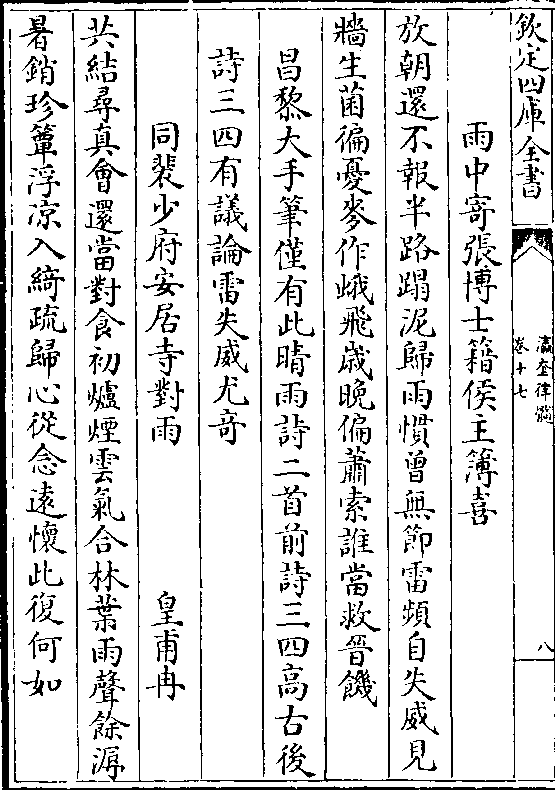 欽定四庫全書
瀛奎律髓
卷十七
八
雨中寄張博士籍侯主簿喜
放朝還不報半路蹋泥歸雨慣曾無節雷頻自失威見
牆生菌徧憂麥作蛾飛歲晚偏蕭索誰當救晉饑
昌黎大手筆僅有此晴雨詩二首前詩三四高古後
詩三四有議論雷失威尤奇
同裴少府安居寺對雨　皇甫冉
共結尋真會還當對食初爐煙雲氣合林葉雨聲餘溽
暑銷珍簟浮涼入綺疏歸心從念遠懷此復何如